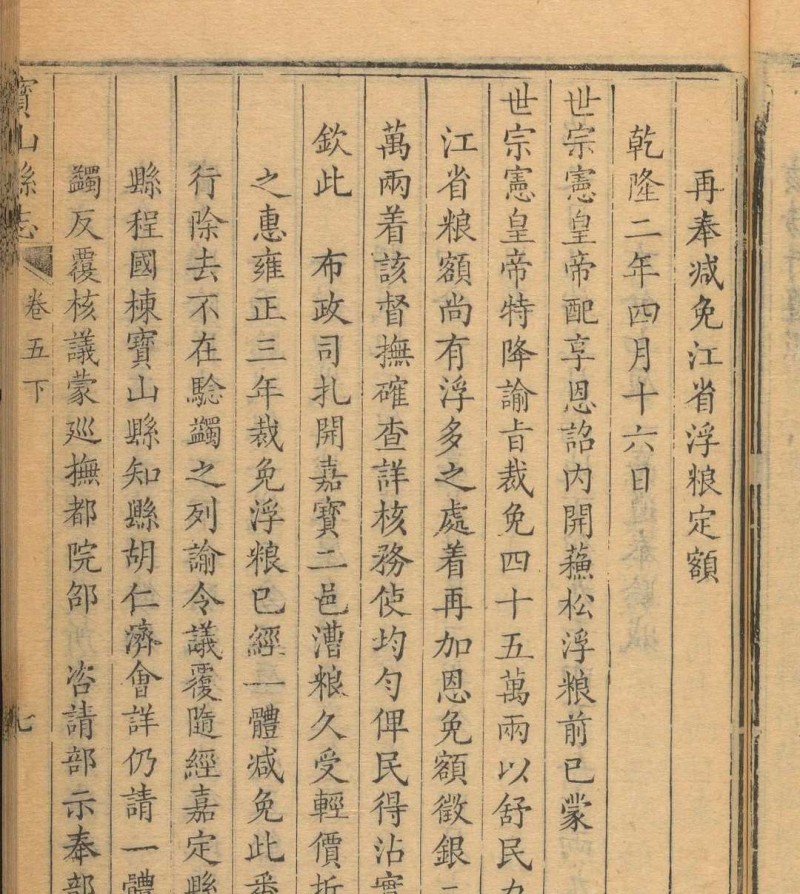 再奉減免江省浮粮定額
乾隆二年四月十六日
世宗憲皇帝配享恩詔内開蘓松浮粮前已蒙
世宗憲皇帝特降諭旨裁免四十五萬兩以舒民
江省粮額尚有浮多之處着再加恩免額徵銀二
萬兩着該督撫確查詳核務使均匀俾民得沾實
欽此　布政司扎開嘉寳二邑漕粮久受輕價折
之惠雍正三年裁免浮粮已經一體減免此番
行除去不在驗蠲之列諭令議覆隨經嘉定縣
縣程國棟寳山縣知縣胡仁濟會詳仍請一體
蠲反覆核議蒙廵撫都院邵　咨請部示奉部
寳山縣志　卷五下　七